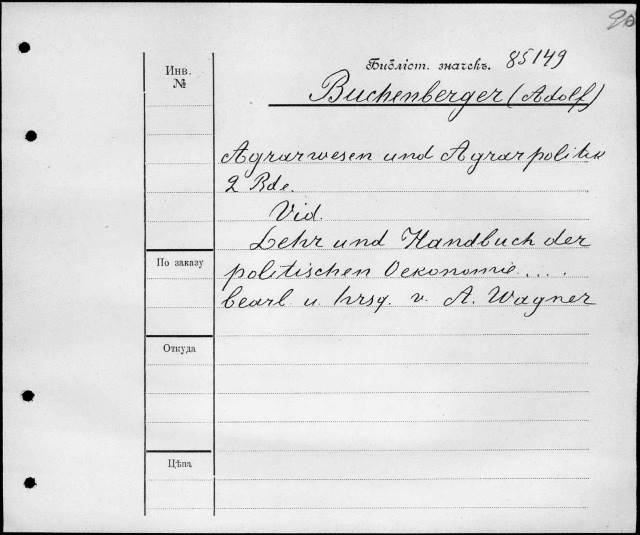 Инв.
№
Библіот. значекъ. 85149
Buchenberger (Adolf)
Agrarwesen und Agrarpolitik
2 Bde.
Vid.
Lehr und Handbuch der
По заказу
politischen Oekonomie....
bearb u. hrsg. v. A. Wagner
Откуда
Цѣна